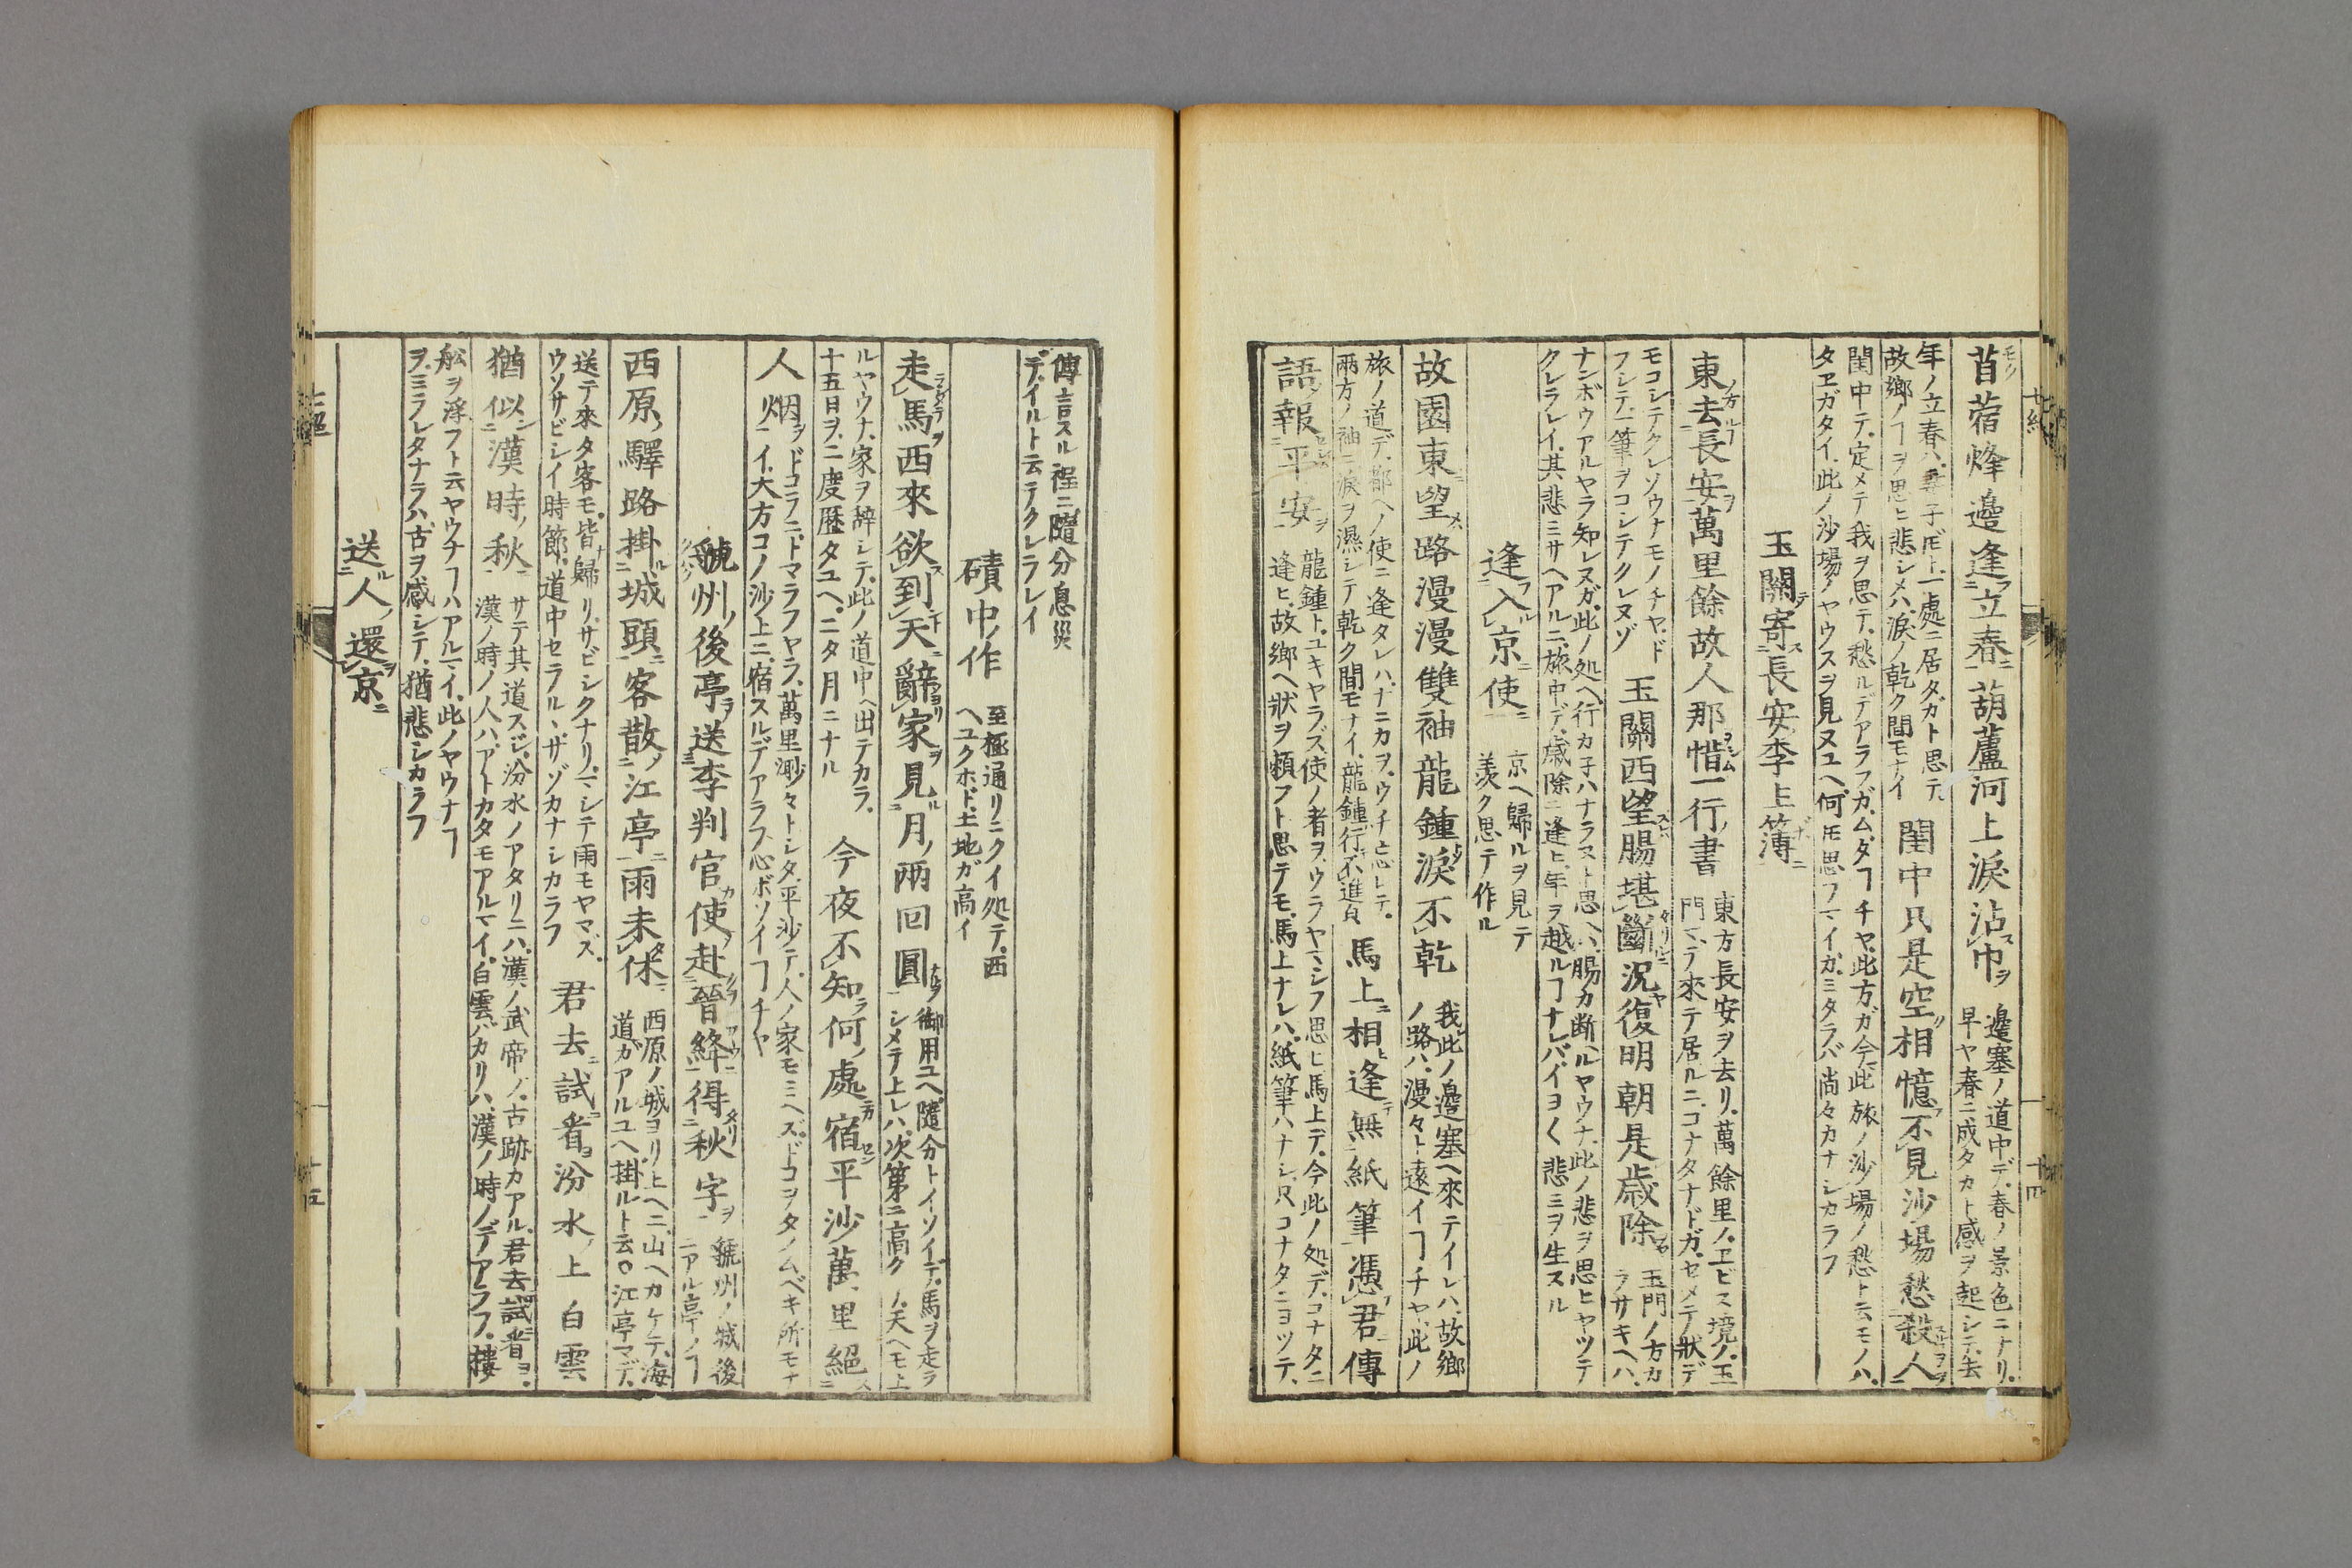 苜蓿烽邊逢立春葫蘆河上淚沾巾 邊塞ノ道中デ、春ノ景色ニナリ、
早ヤ春ニ成タカト感ヲ起シテ、去
年ノ立春ハ、妻子ドモト一處ニ居タガト思テ、
故鄉ノヿヲ思ヒ悲シメハ、淚ノ乾ク間モナイ 閨中只是空相憶不見沙場愁殺人
閨中テ、定メテ我ヲ思テ、愁ルデアラフガ、ムダヿチヤ、此方ガ今此旅ノ沙場ノ愁ト云モノハ、
タヱガタイ、此ノ沙場ノヤウスヲ見ヌユヘ、何ト思フマイカ、ミタラバ尚々カナシカラフ
玉關寄長安李主簿
東去長安萬里餘故人那惜一行書 東方長安ヲ去リ、萬餘里ノ、ヱビス境ノ、玉
門マデ來テ居ルニ、コナタナドガ、セメテノ狀デ
モコシテクレソウナモノチヤ、ド
フシテ、一筆ヲコシテクレヌゾ 玉關西望腸堪斷況復明朝是歲除 玉門ノ方カ
ラサキヘハ、
ナンボウアルヤラ知レヌガ、此ノ処ヘ行カ子ハナラヌト思ヘハ、腸カ断ヘルヤウナ、此ノ悲ヲ思ヒヤツテ
クレラレイ、其悲ミサヘアルニ、旅中デ、歲除ニ逢ヒ、年ヲ越ルヿナレバ、イヨ〱悲ミヲ生スル
逢入京使 京ヘ歸ルヲ見テ
羨ク思テ作ル
故園東望路漫漫雙袖龍鍾淚不乾 我此ノ邊塞ヘ來テイレハ、故鄉
ノ路ハ、漫々ト遠イヿチヤ、此ノ
旅ノ道デ、都ヘノ使ニ逢タレハ、ナニカヲ、ウチ忘レテ、
兩方ノ袖ニ淚ヲ濕シテ乾ク間モナイ、龍鍾、行不進貌 馬上相逢無紙筆憑君傳
語報平安 龍鍾ト、ユキヤラズ、使ノ者ヲ、ウラヤマシフ思ヒ馬上デ、今此ノ処デ、コナタニ
逢ヒ、故鄉ヘ狀ヲ頼フト思テモ、馬上ナレハ、紙筆ハナシ、只コナタニヨツテ、
傳言スル程ニ、隨分息災
デ、イルト云テクレラレイ
磧中作 至極通リニクイ処テ、西
ヘユクホド、土地ガ高イ
走馬西來欲到天辭家見月兩回圓 御用ユヘ、隨分トイソイデ、馬ヲ走ラ
シメテ上レハ、次第ニ高ク、天ヘモ上
ルヤウナ、家ヲ辭シテ、此ノ道中ヘ出テカラ、
十五日ヲ、二度歷タユヘ、二タ月ニナル 今夜不知何處宿平沙萬里絕
人烟 ドコラニ、トマラフヤラ、萬里渺々トシタ、平沙テ、人ノ家モミヘズ、ドコヲタノムベキ所モナ
イ、大方コノ沙上ニ、宿スルデアラフ、心ボソイヿチヤ
虢州後亭送李判官使赴晉絳得秋字 虢州ノ城後
ニアル亭ノヿ
西原驛路掛城頭客散江亭雨未休 西原ノ城ヨリ上ヘニ、山ヘカケテ、海
道ガアルユヘ掛ルト云○江亭マデ、
送テ來タ客モ、皆歸リ、サビシクナリ、マシテ雨モヤマズ、
ウソサビシイ時節、道中セラルヽ、サゾカナシカラフ 君去試看汾水上白雲
猶似漢時秋 サテ其道スジ、汾水ノアタリニハ、漢ノ武帝ノ、古跡カアル、君去試看ヨ、
漢ノ時ノ人ハ、アトカタモアルマイ、白雲バカリハ、漢ノ時ノデアラフ、樓
舩ヲ浮フト云ヤウナヿハアルマイ、此ノヤウナヿ
ヲ、ミラレタナラハ、古ヲ感シテ、猶悲シカラフ
送人還京